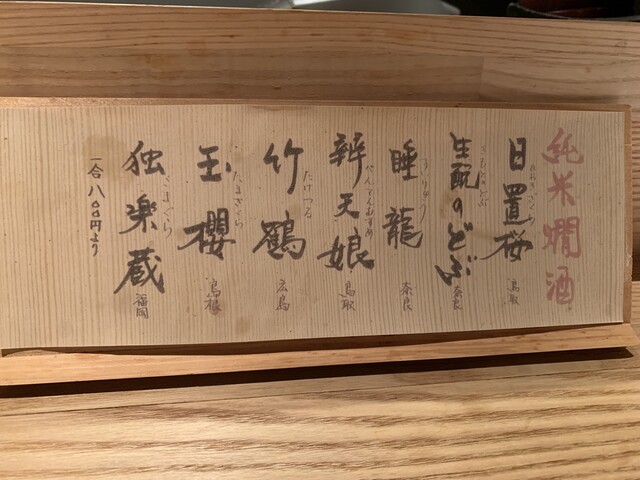 純米燗酒
日置桜
ひおきざくら
鳥取
生酛のどぶ
きもとのどぶ
奈良
睡龍
すいりゅう
奈良
辨天娘
べんてんむすめ
鳥取
竹鶴
たけつる
広島
玉櫻
たまざくら
島根
独楽蔵
こまぐら
福岡
一合八〇〇円より